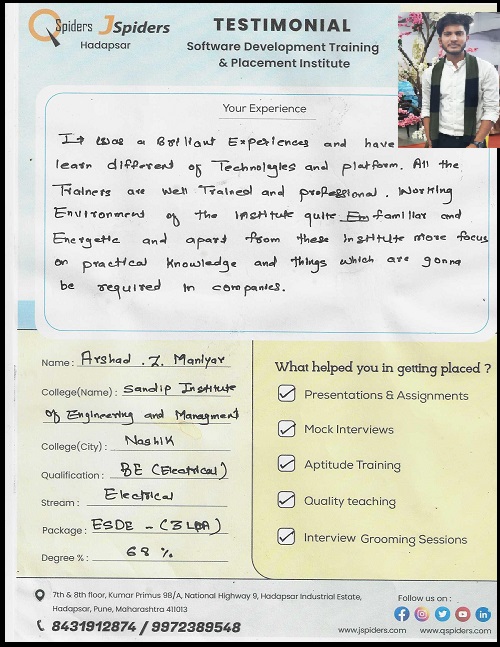 QSpiders JSpiders
Hadapsar
TESTIMONIAL
Software Development Training
& Placement Institute
Your Experience
It was a Brilliant Experiences and have
learn different of Technologies and platform. All the
Trainers are Well Trained and professional. Working
Environment of the institute quite Em familiar and
Energetic and apart from these institute more focus
on practical Knowledge and things which are gonna
be required in companies.
Name : Arshad . Z. Maniyar
College(Name) : Sandip Institute
Of Engineering and Managment
College(City) : Nashik
Qualification : BE (Electrical)
Stream : Electrical
Package : ESDE - (3 LPA)
Degree % : 68 %
What helped you in getting placed ?
Presentations & Assignments
Mock Interviews
Aptitude Training
Quality teaching
Interview Grooming Sessions
7th & 8th floor, Kumar Primus 98/A, National Highway 9, Hadapsar Industrial Estate,
Hadapsar, Pune, Maharashtra 411013
8431912874 / 9972389548
Follow us on :
www.jspiders.com www.qspiders.com